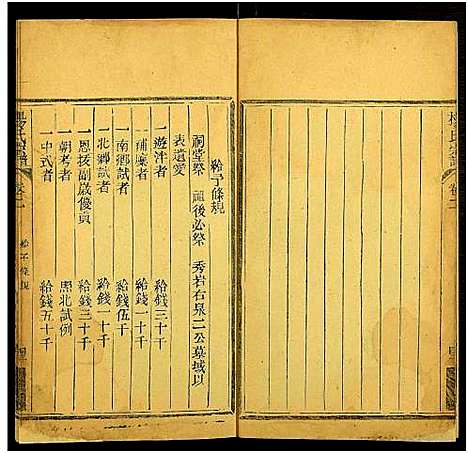 楊氏宗譜
卷二
給予條規
祠堂祭 祖後必祭 秀岩右泉二公墓域以
表遺愛
一遊泮者 給錢三十千
一補廩者 給錢一十千
一南鄉試者 給錢伍千
一北鄉試者 給錢一十千
一恩拔副歲優貢 給錢三十千
一朝考者 照北試例
一中式者 給錢五十千
卷二
給予條規
四